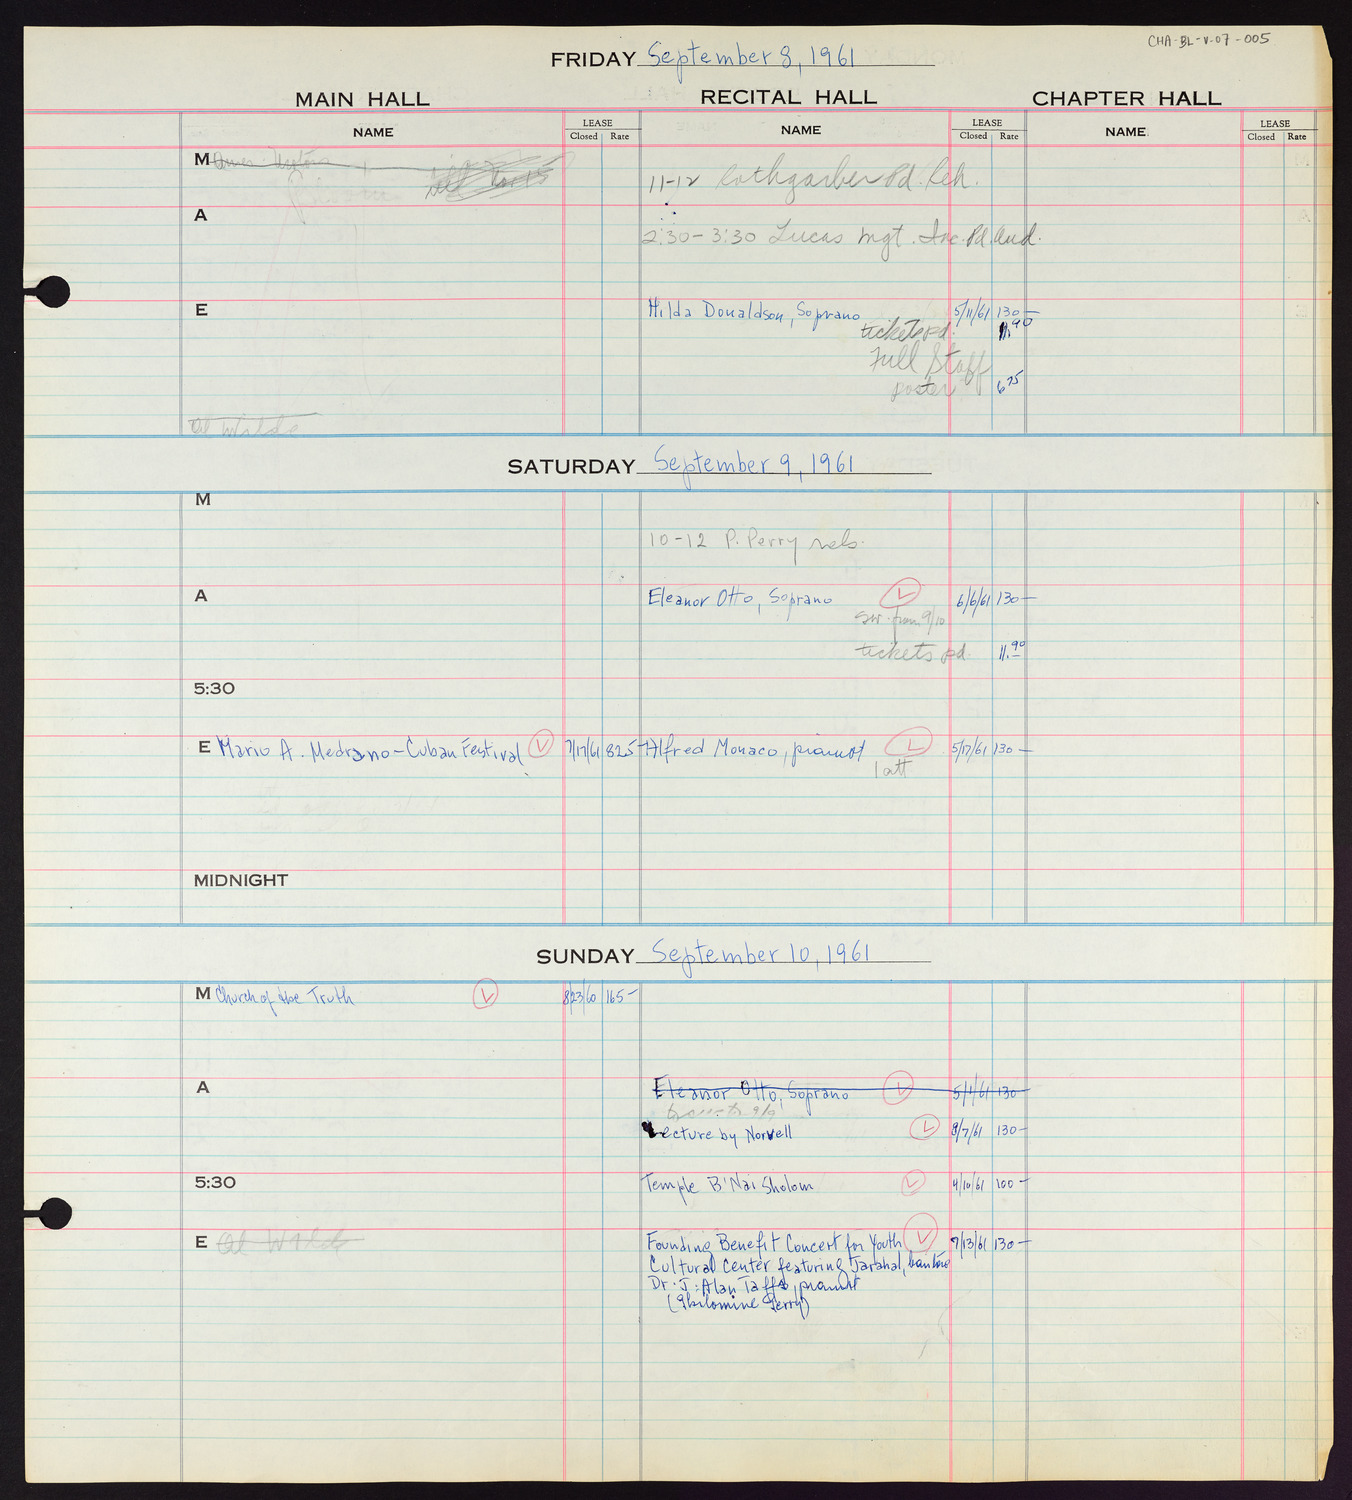 CHA-BL-V-07-005
FRIDAY September 8, 1961
MAIN HALL RECITAL HALL CHAPTER HALL
NAME LEASE Closed Rate NAME LEASE Closed Rate NAME LEASE Closed Rate
M
11-12 Rothgarber Pd. Reh.
A
2:30-3:30 Lucas Mgt. Inc. Pd. Aud.
E Hilda Donaldson, Soprano 5/11/61 130-
tickets pd. 11.90
Full Staff
poster 6 75
Al Wilde
SATURDAY September 9, 1961
M
10-12 P. Perry rels.
A Eleanor Otto, Soprano 6/6/61 130-
sw. from 9/10
tickets pd. 11.90
5:30
E Mario A. Medrano-Cuban Festival 7/17/61 825- Alfred Monaco, pianist 5/17/61 130-
1 att
MIDNIGHT
SUNDAY September 10, 1961
M Church of the Truth 8/23/60 165-
A Eleanor Otto, Soprano 5/1/61 130-
9/9
Lecture by Norvell 8/7/61 130-
5:30 Temple B'Nai Sholom 4/10/61 100-
E Al Wilde Founding Benefit Concert for Youth 7/13/61 130-
Cultural Center featuring Jarahal, baritone
Dr. J. Alan Taffs, pianist
(Philomine Perry)